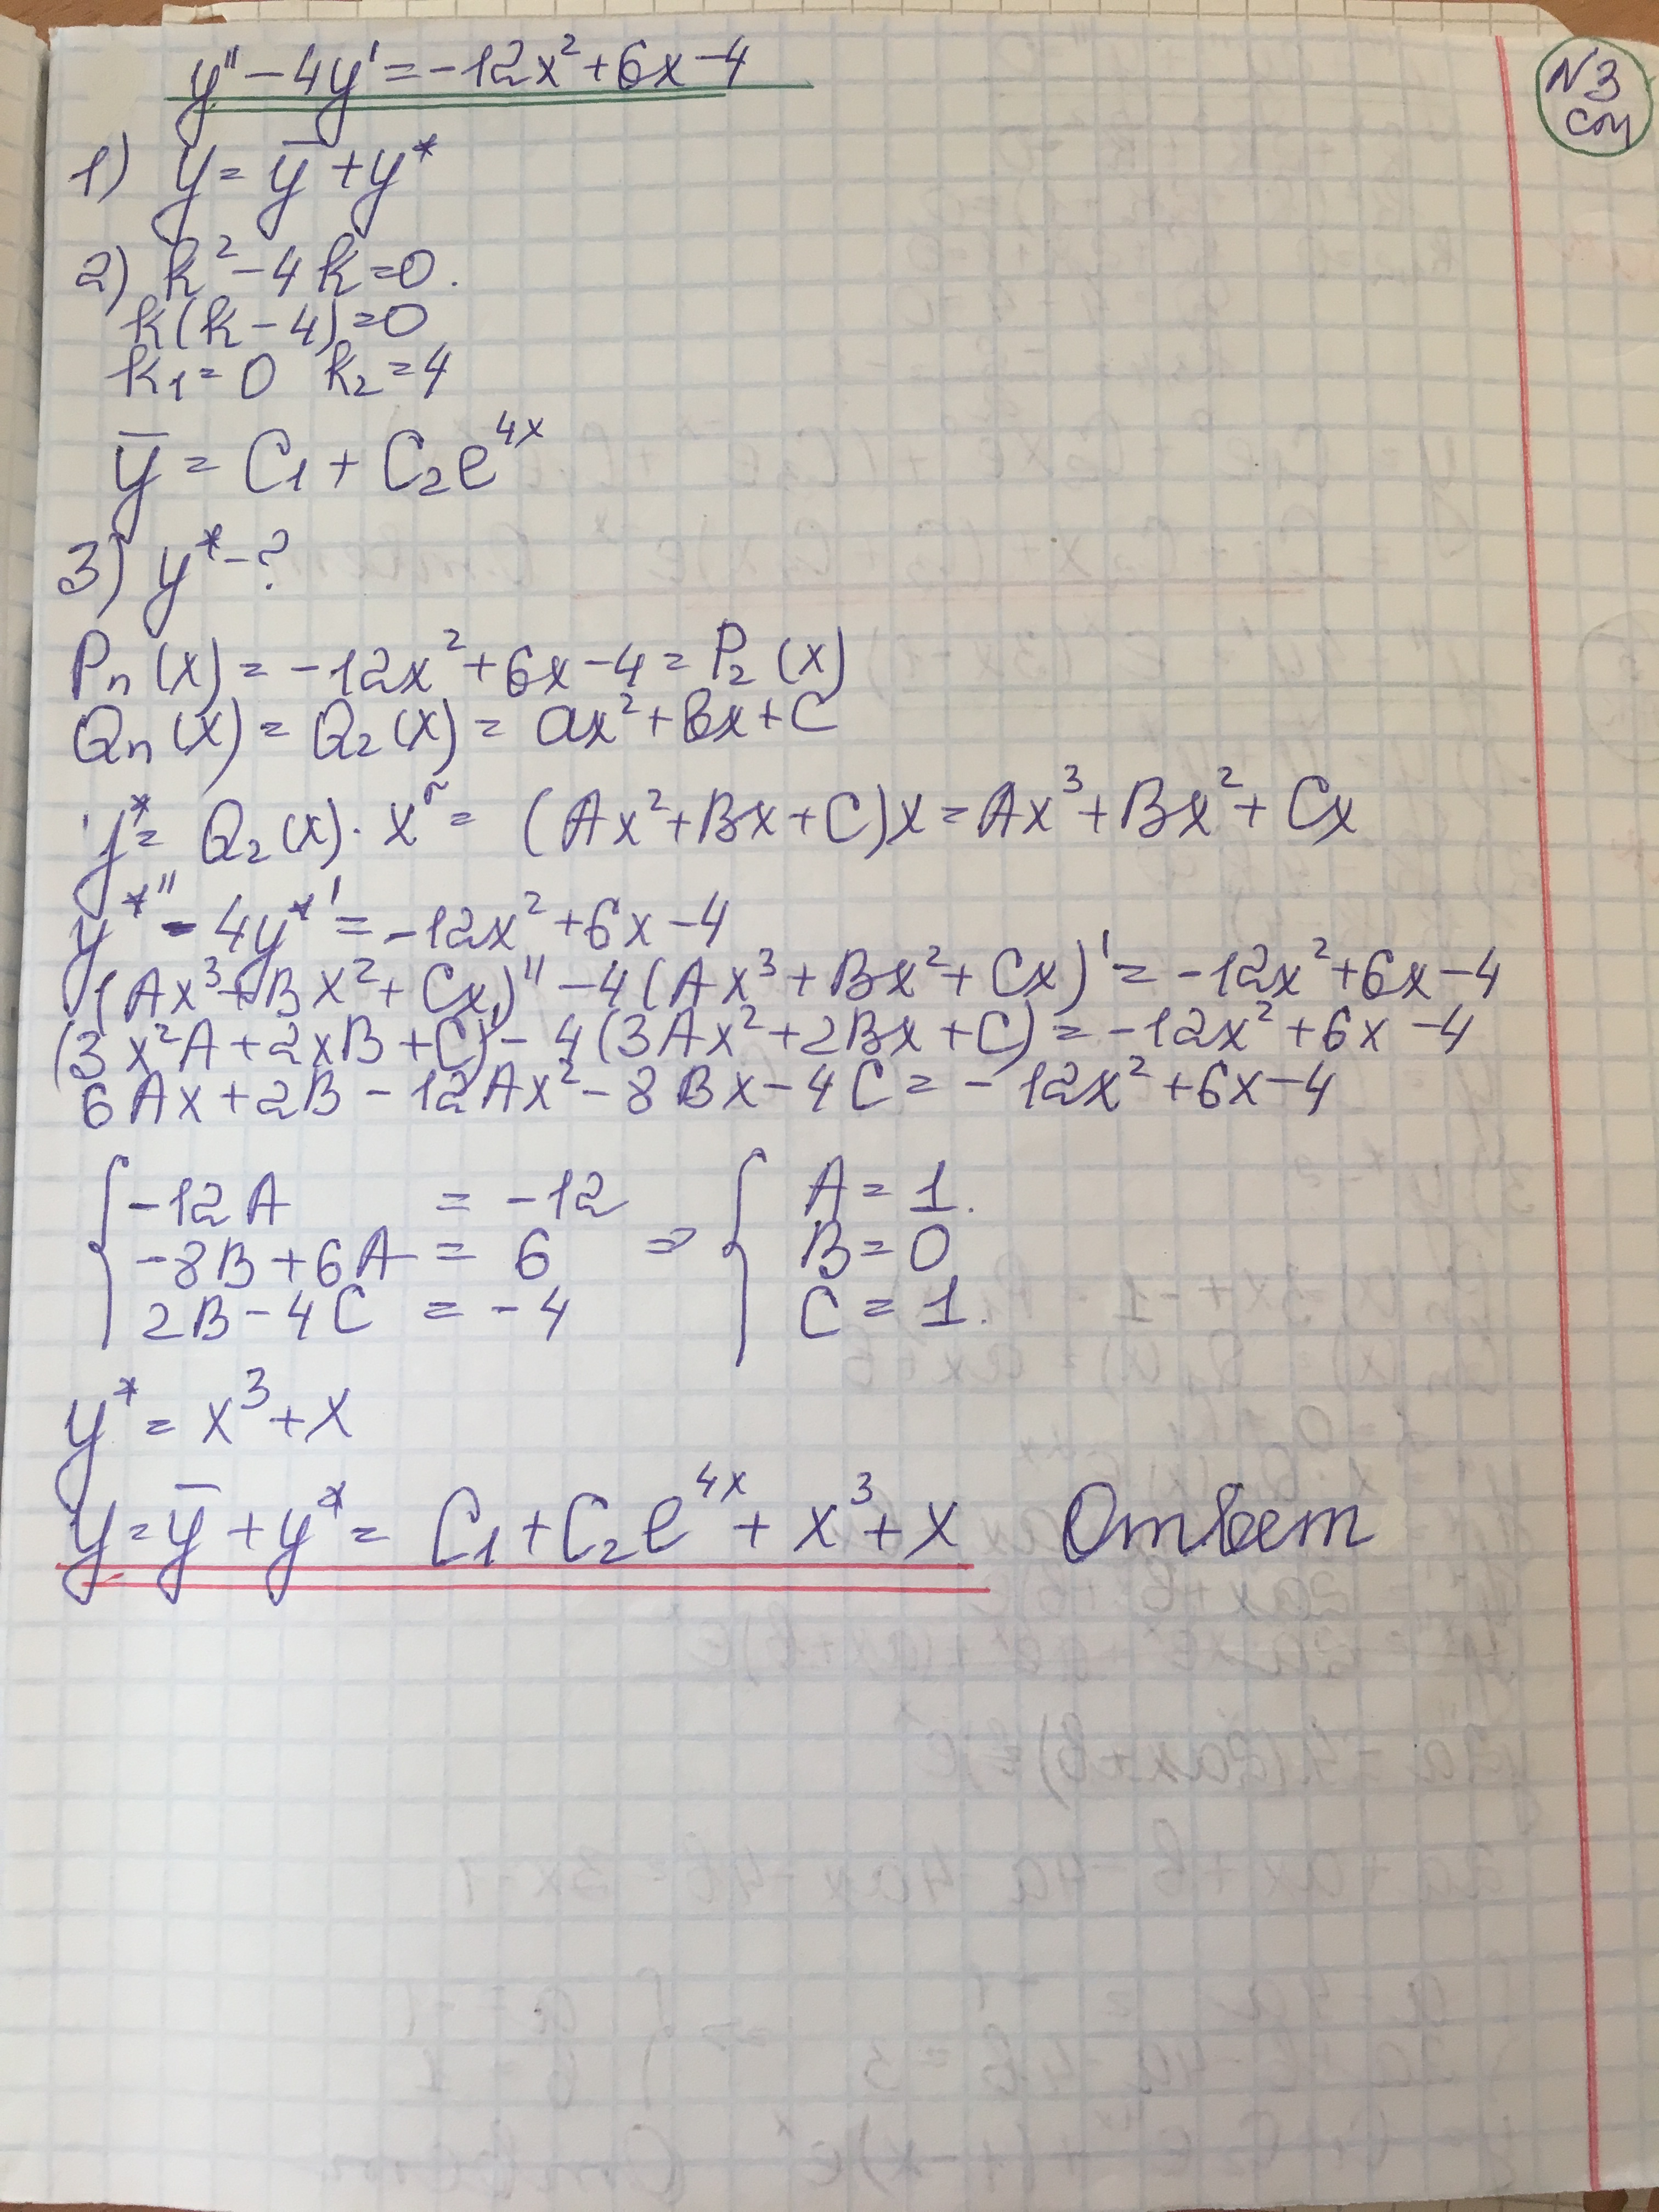 y'' - 4y' = -12x² + 6x - 4
N3
сам
1) y = ȳ + y*
2) k² - 4k = 0.
k(k - 4) = 0
k₁ = 0 k₂ = 4
ȳ = C₁ + C₂e^4x
3) y* - ?
Pn(x) = -12x² + 6x - 4 = P₂(x)
Qn(x) = Q₂(x) = ax² + bx + C
y* = Q₂(x) · x^r = (Ax² + Bx + C)x = Ax³ + Bx² + Cx
y*'' - 4y*' = -12x² + 6x - 4
(Ax³ + Bx² + Cx)'' - 4(Ax³ + Bx² + Cx)' = -12x² + 6x - 4
(3x²A + 2xB + C)' - 4(3Ax² + 2Bx + C) = -12x² + 6x - 4
6Ax + 2B - 12Ax² - 8Bx - 4C = -12x² + 6x - 4
{ -12A = -12 { A = 1.
-8B + 6A = 6 ⇒ B = 0
2B - 4C = -4 C = 1.
y* = x³ + x
y = ȳ + y* = C₁ + C₂e^4x + x³ + x Ответ